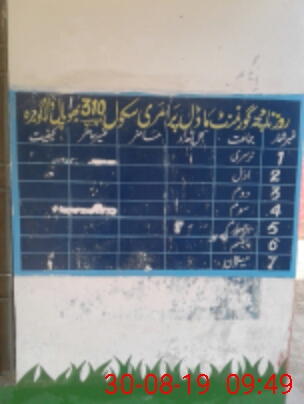 روزنامچہ گورنمنٹ ماڈل پرائمری سکول 310
نمبر شمار جماعت کل تعداد حاضر غیر حاضر کیفیت
1 نرسری
2 اول
3 دوم
4 سوم
5 چہارم
6 پنجم
7 میزان
30-08-19 09:49